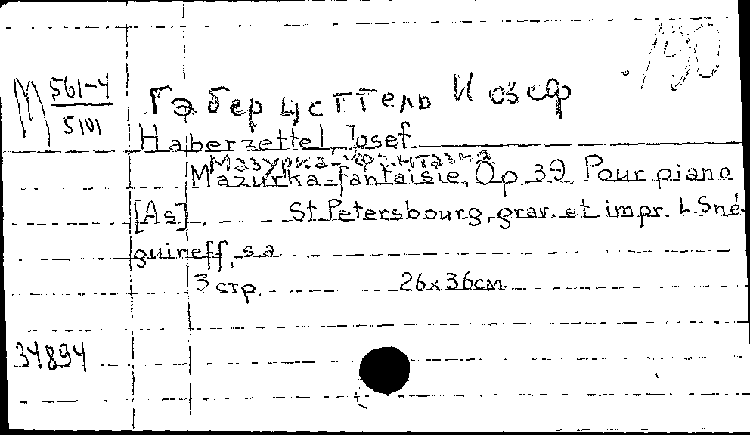 190
М 561-4
5101
Габерцеттель Иозеф
Haberzettel, Josef.
Мазурка-фантазия
Mazurka-fantaisie, Op. 39. Pour piano
[As]. St. Petersbourg, grav. et impr. L. Sné-
guireff, s.a.
3 стр. 26x36см
34894